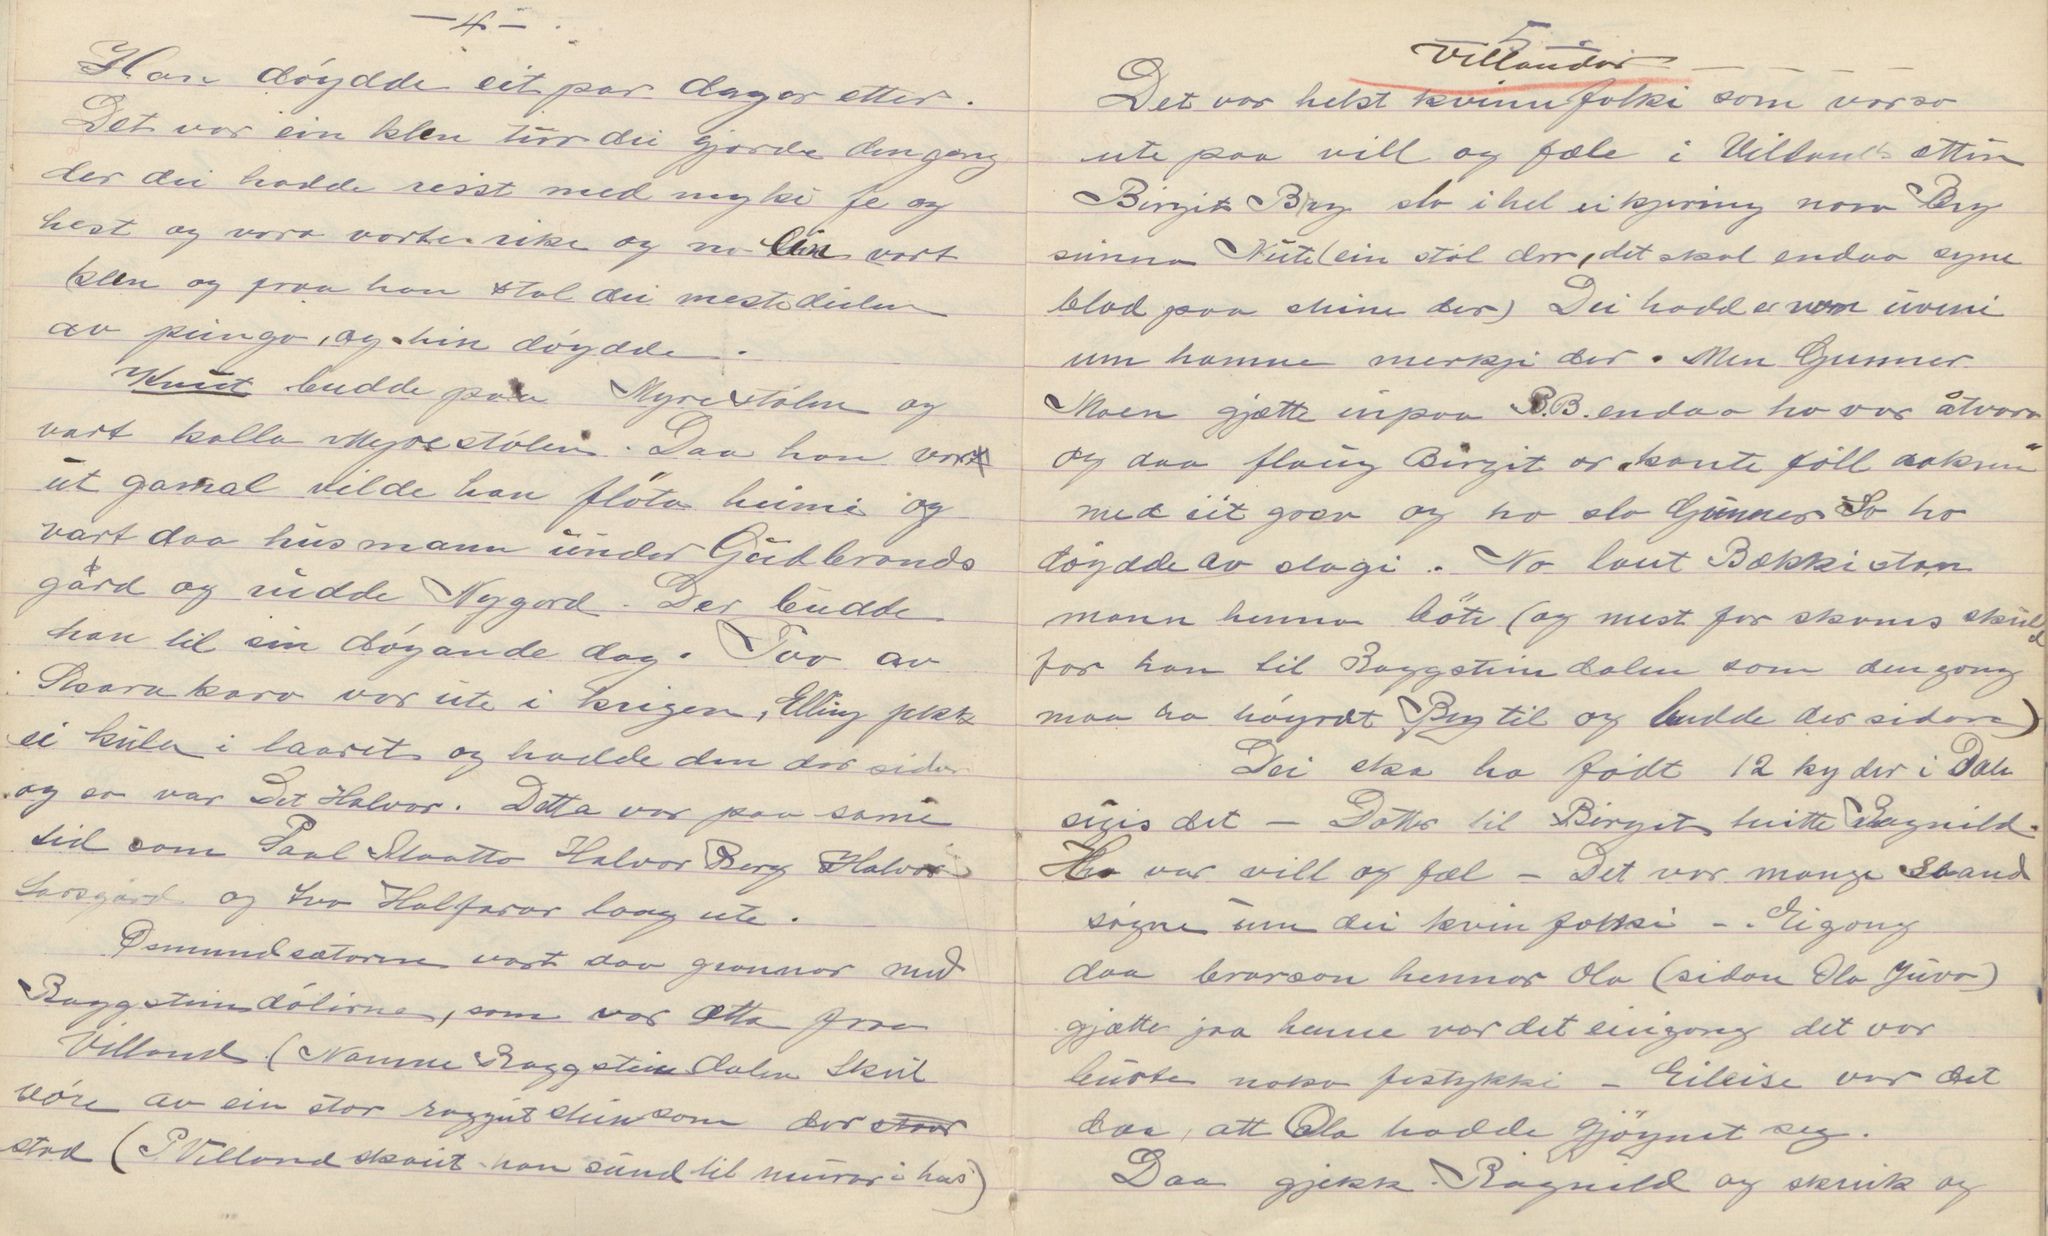 — 4 —
Han döydde eit par dagar etter.
Det var ein klen tur dei gjorde dengong
der dei hadde reist med myki fe og
hest og vara vorte rike og no ein vart
klen og fraa han stal dei meste deilen
av pungo, og hin döydde.
Knut budde paa Myrestölen og
vart kalla Myrestölen. Daa han vart
ut gamal vilde han flöta heim og
vart daa husmann under Gudbrands
gård og rudde Nygard. Der budde
han til sin döyande dag. Tvo av
Skarakara var ute i krigen, Elling fekk
ei kula i laaret og hadde den der sidan
og so var det Halvor. Detta var paa sami
tid som Paal Slaatto Halvor Berg Halvor
Larsgård og tvo Halfarar laag ute.
Øsmundsætorne vart daa grannar med
Raggsteindölirne, som var ætta fraa
Villand. (Namne Raggsteindalen skul
vöre av ein stor raggut stein som der
stod (P. Villand skaut han sund til murar i hus)
5
Villandar
Det var helst kvinnfolki som var so
ute paa vill og fæle i Villands ættin
Birgit Berg slo ihel ei kjering nora Berg
sunna Nute (ein stöl der, det skal endaa syne
blod paa steine der) Dei hadde uveni
um hamne merkji der. Men Gunner
Moen gjætte inpaa B.B. endaa ho var åtvara
og daa flaug Birgit or kante föll
med eit and og ho slo Gunner so ho
döydde av slagi. No laut Bækkistan
mann henna böte (og mest for skams skuld
for han til Raggsteindalen som dengong
maa ha höyrdt Berg til og budde der sidan)
Dei ska ha födt 12 kyder i Dale
seies det — Dotter til Birgit heitte Ragnild.
Ho var vill og fæl — Det var mange
sögne um dei kvinfolki — Eigong
daa brorson hennar Ola (sidan Ola Juva)
gjætte jaa henne var det eingong det var
burte noko festykki — Eileise var det
daa, att Ola hadde gjöymt seg.
Daa gjekk Ragnild og skreik og